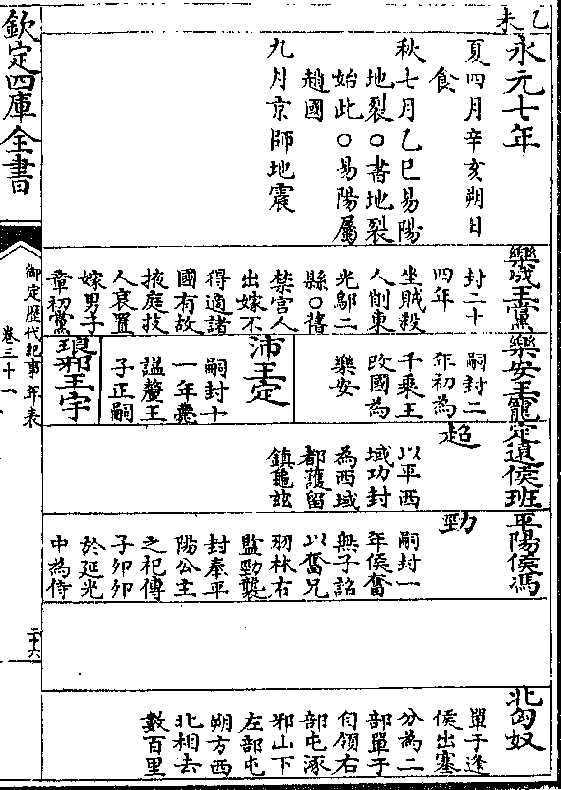 乙未
永元七年
夏四月辛亥朔日
食
秋七月乙巳易陽
地裂○書地裂
始此○易陽屬
趙國
九月京師地震
樂成王黨
封二十
四年
坐賊殺
人削東
光鄔二
縣○舊
禁宮人
出嫁不
得適諸
國有故
掖庭技
人哀置
嫁男子
章初黨
樂安王寵
嗣封二
年初為
千乘王
改國為
樂安
沛王定
嗣封十
一年薨
諡釐王
子正嗣
琅邪王宇
定遠侯班
超
以平西
域功封
為西域
都護留
鎮龜玆
平陽侯馮
勁
嗣封一
年侯奮
無子詔
以奮兄
羽林右
監勁襲
封奉平
陽公主
之祀傳
子卯卯
於延光
中為侍
北匈奴
單于逢
侯出塞
分為二
部單于
自領右
部屯涿
邪山下
左部屯
朔方西
北相去
數百里
欽定四庫全書
御定歷代紀事年表
卷三十一
二十六